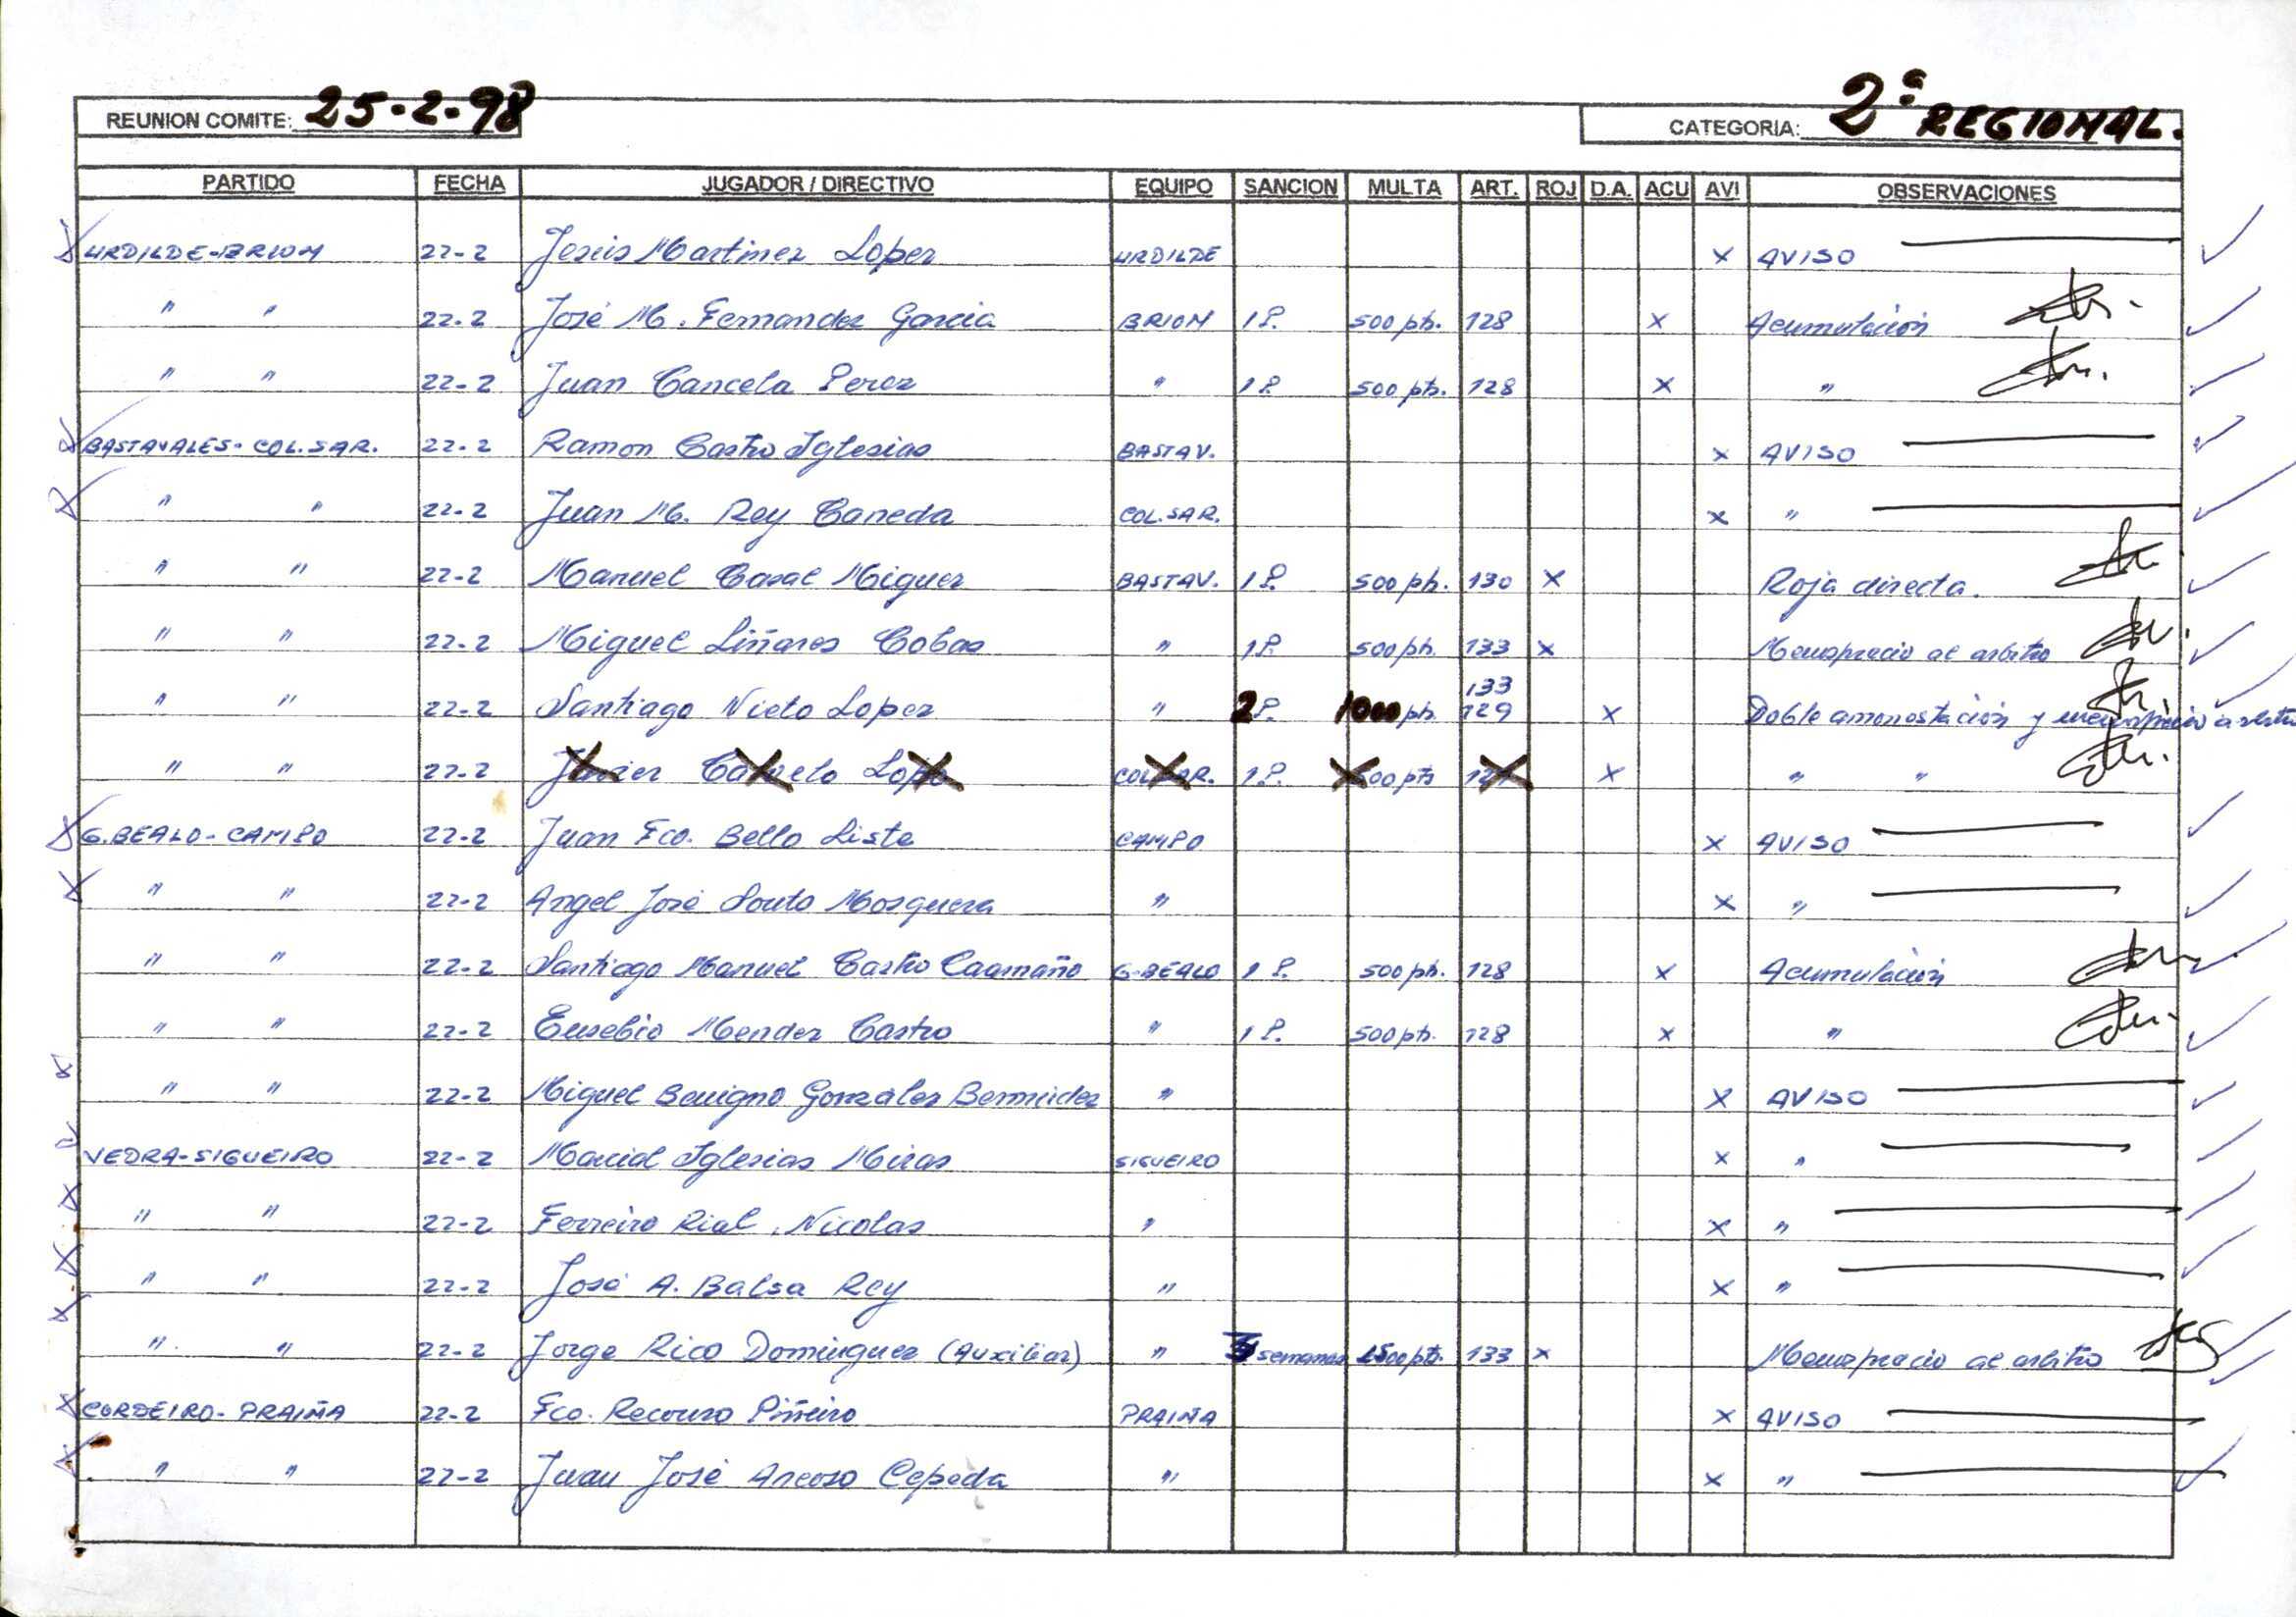 REUNION COMITE: 25-2-98 CATEGORIA: 2ª REGIONAL.
PARTIDO FECHA JUGADOR / DIRECTIVO EQUIPO SANCION MULTA ART. ROJ D.A. ACU AVI OBSERVACIONES
URDILDE-BRION 22-2 Jesús Martinez Lopez URDILDE x AVISO
" " 22-2 José M. Fernandez Garcia BRION 1P. 500 pts. 128 x Acumulación
" " 22-2 Juan Cancela Perez " 1P 500 pts. 128 x "
BASTAVALES- COL.SAR. 22-2 Ramon Castro Iglesias BASTAV. x AVISO
" " 22-2 Juan M. Rey Caneda COL.SAR. x "
" " 22-2 Manuel Casal Miguez BASTAV. 1P. 500 pts. 130 x Roja directa.
" " 22-2 Miguel Liñares Cobas " 1P. 500 pts. 133 x Menosprecio al arbitro
" " 22-2 Santiago Nieto Lopez " 2P. 1000 pts. 133 129 x Doble amonestación y menosprecio arbitro
" " 22-2 Javier Lopo COL.SAR. 1P. 500 pts x " "
G.BEALO- CAMPO 22-2 Juan Fco. Bello Liste CAMPO x AVISO
" " 22-2 Angel José Souto Mosquera " x "
" " 22-2 Santiago Manuel Castro Caamaño G.BEALO 1P. 500 pts. 128 x Acumulación
" " 22-2 Eusebio Mendez Castro " 1P. 500 pts. 128 x "
" " 22-2 Miguel Benigno Gonzalez Bermúdez " x AVISO
VEDRA-SIGUEIRO 22-2 Marcial Iglesias Miras SIGUEIRO x "
" " 22-2 Ferreiro Rial, Nicolas " x "
" " 22-2 José A. Balsa Rey " x "
" " 22-2 Jorge Rico Dominguez (Auxiliar) " semanas 133 x Menosprecio al arbitro
CORDEIRO- PRAIÑA 22-2 Fco. Recouso Piñeiro PRAIÑA x AVISO
" " 22-2 Juan José Ancoso Cepeda " x "